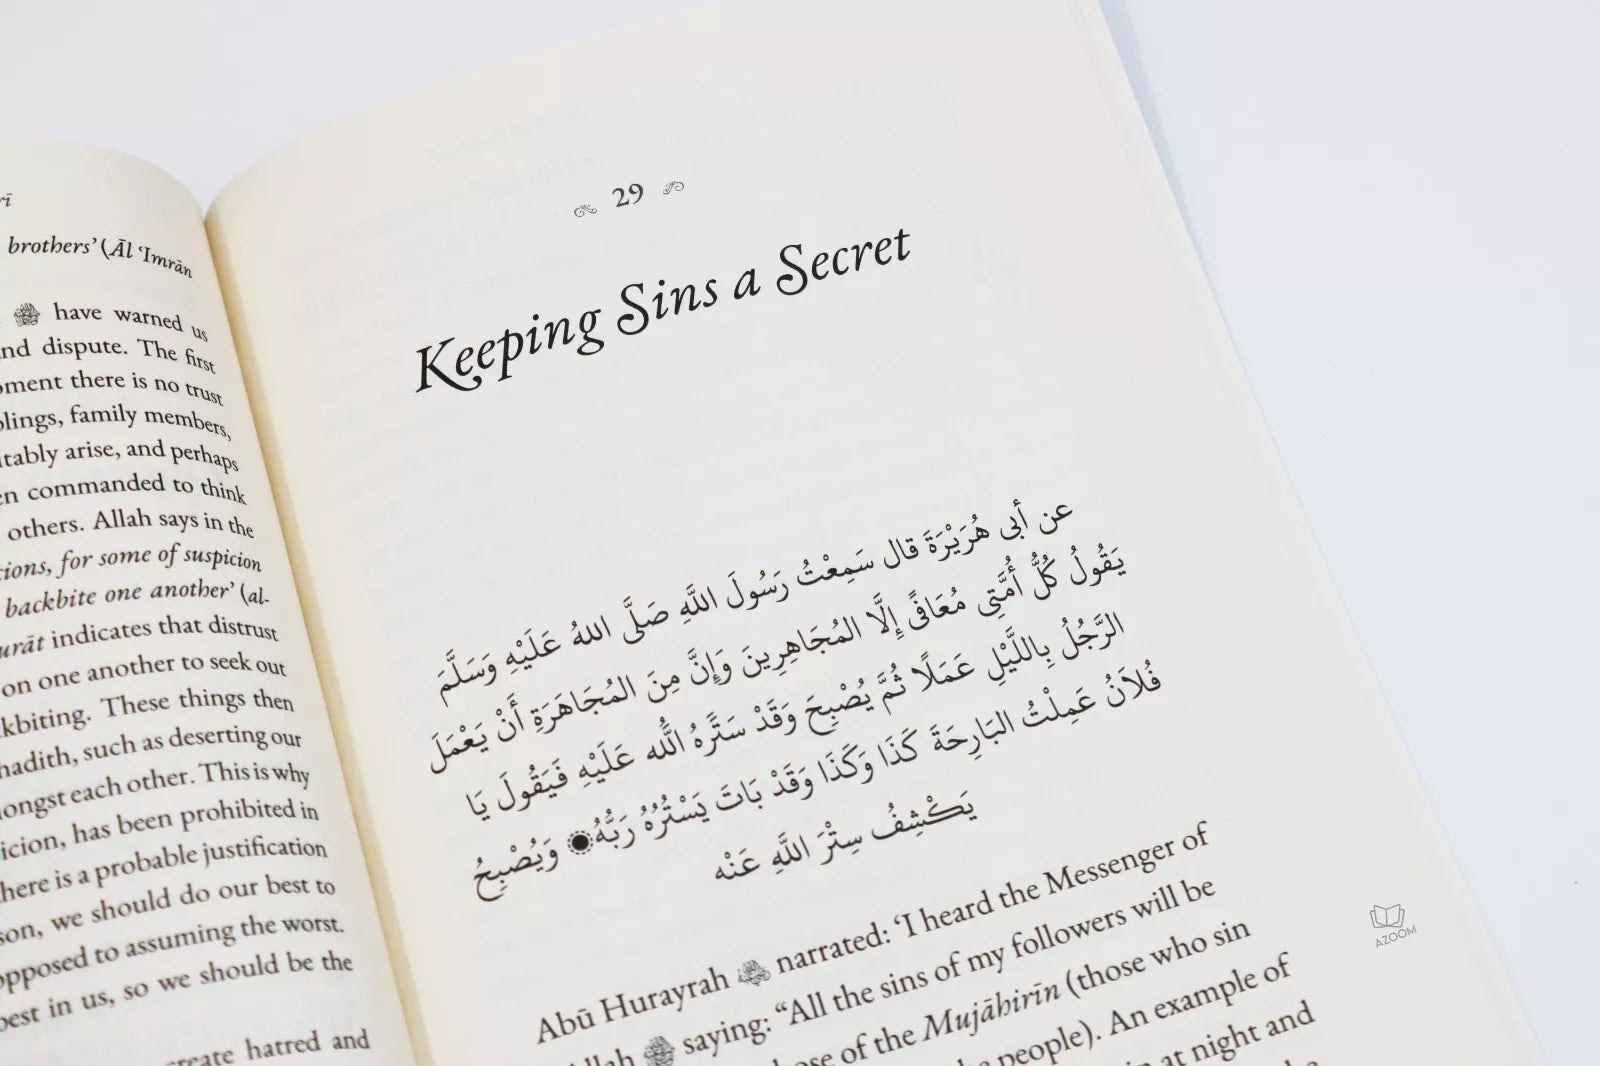 rī
brothers’ (Āl ‘Imrān
have warned us
and dispute. The first
moment there is no trust
siblings, family members,
itably arise, and perhaps
en commanded to think
others. Allah says in the
cions, for some of suspicion
backbite one another’ (al-
urāt indicates that distrust
on one another to seek out
kbiting. These things then
hadith, such as deserting our
mongst each other. This is why
icion, has been prohibited in
here is a probable justification
son, we should do our best to
opposed to assuming the worst.
best in us, so we should be the
create hatred and
29
Keeping Sins a Secret
عن أبى هُرَيْرَةَ قال سَمِعْتُ رَسُولَ اللَّهِ صَلَّى اللهُ عَلَيْهِ وَسَلَّمَ
يَقُولُ كُلُّ أُمَّتِى مُعَافًى إِلَّا المُجَاهِرِينَ وَإِنَّ مِنَ المُجَاهَرَةِ أَنْ يَعْمَلَ
الرَّجُلُ بِاللَّيْلِ عَمَلًا ثُمَّ يُصْبِحَ وَقَدْ سَتَّرَهُ اللّٰه عَلَيْهِ فَيَقُولَ يَا
فُلاَنُ عَمِلْتُ البَارِحَةَ كَذَا وَكَذَا وَقَدْ بَاتَ يَسْتُرُهُ رَبُّهُ وَيُصْبِحُ
يَكْشِفُ سِتْرَ اللَّهِ عَنْه
Abū Hurayrah narrated: ‘I heard the Messenger of
Allah saying: “All the sins of my followers will be
those of the Mujāhirīn (those who sin
the people). An example of
in at night and
AZOOM